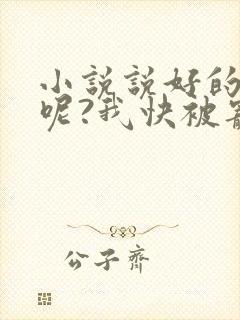 小說說好的
呢?我快被寵
公子齊